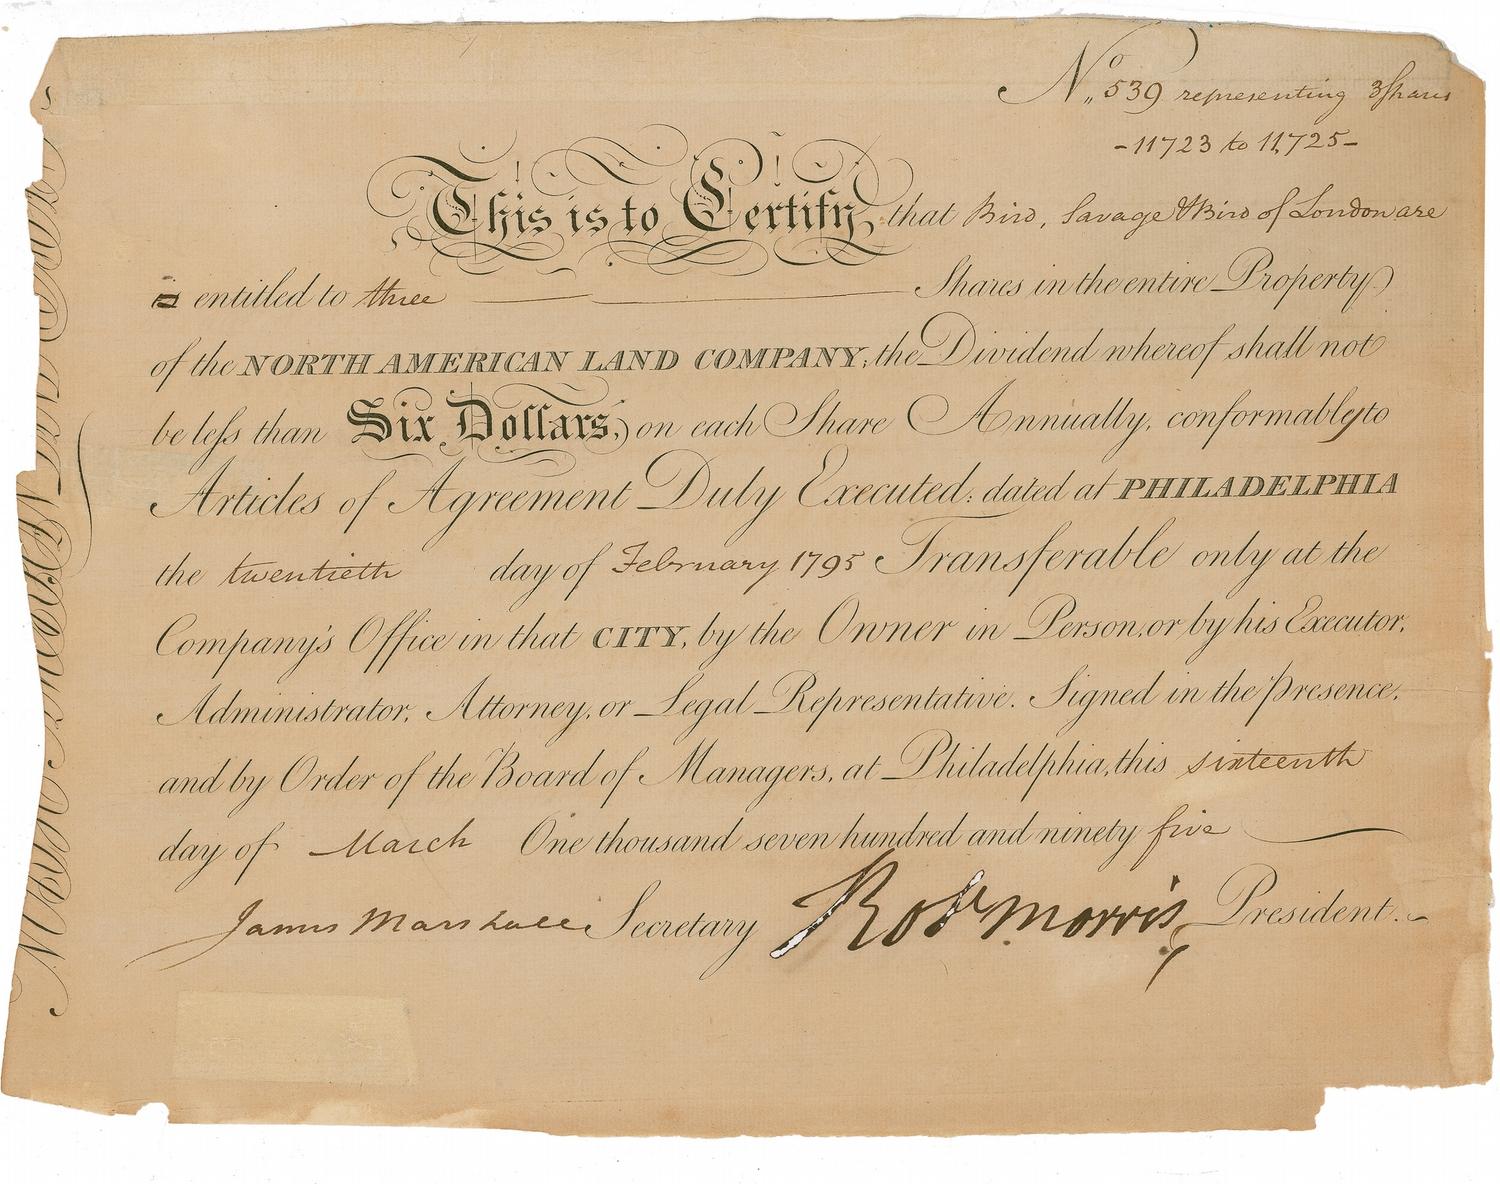 No. 539 representing 3 Shares
- 11723 to 11,725 -
This is to Certify, that Bird, Savage & Bird of London are
is entitled to three Shares in the entire Property
of the NORTH AMERICAN LAND COMPANY; the Dividend whereof shall not
be less than Six Dollars, on each Share Annually, conformably to
Articles of Agreement Duly Executed: dated at PHILADELPHIA
the twentieth day of February 1795 Transferable only at the
Company's Office in that CITY, by the Owner in Person, or by his Executor,
Administrator, Attorney, or Legal Representative. Signed in the presence,
and by Order of the Board of Managers, at Philadelphia, this sixteenth
day of March One thousand seven hundred and ninety five
James Marshall Secretary Robt Morris President.